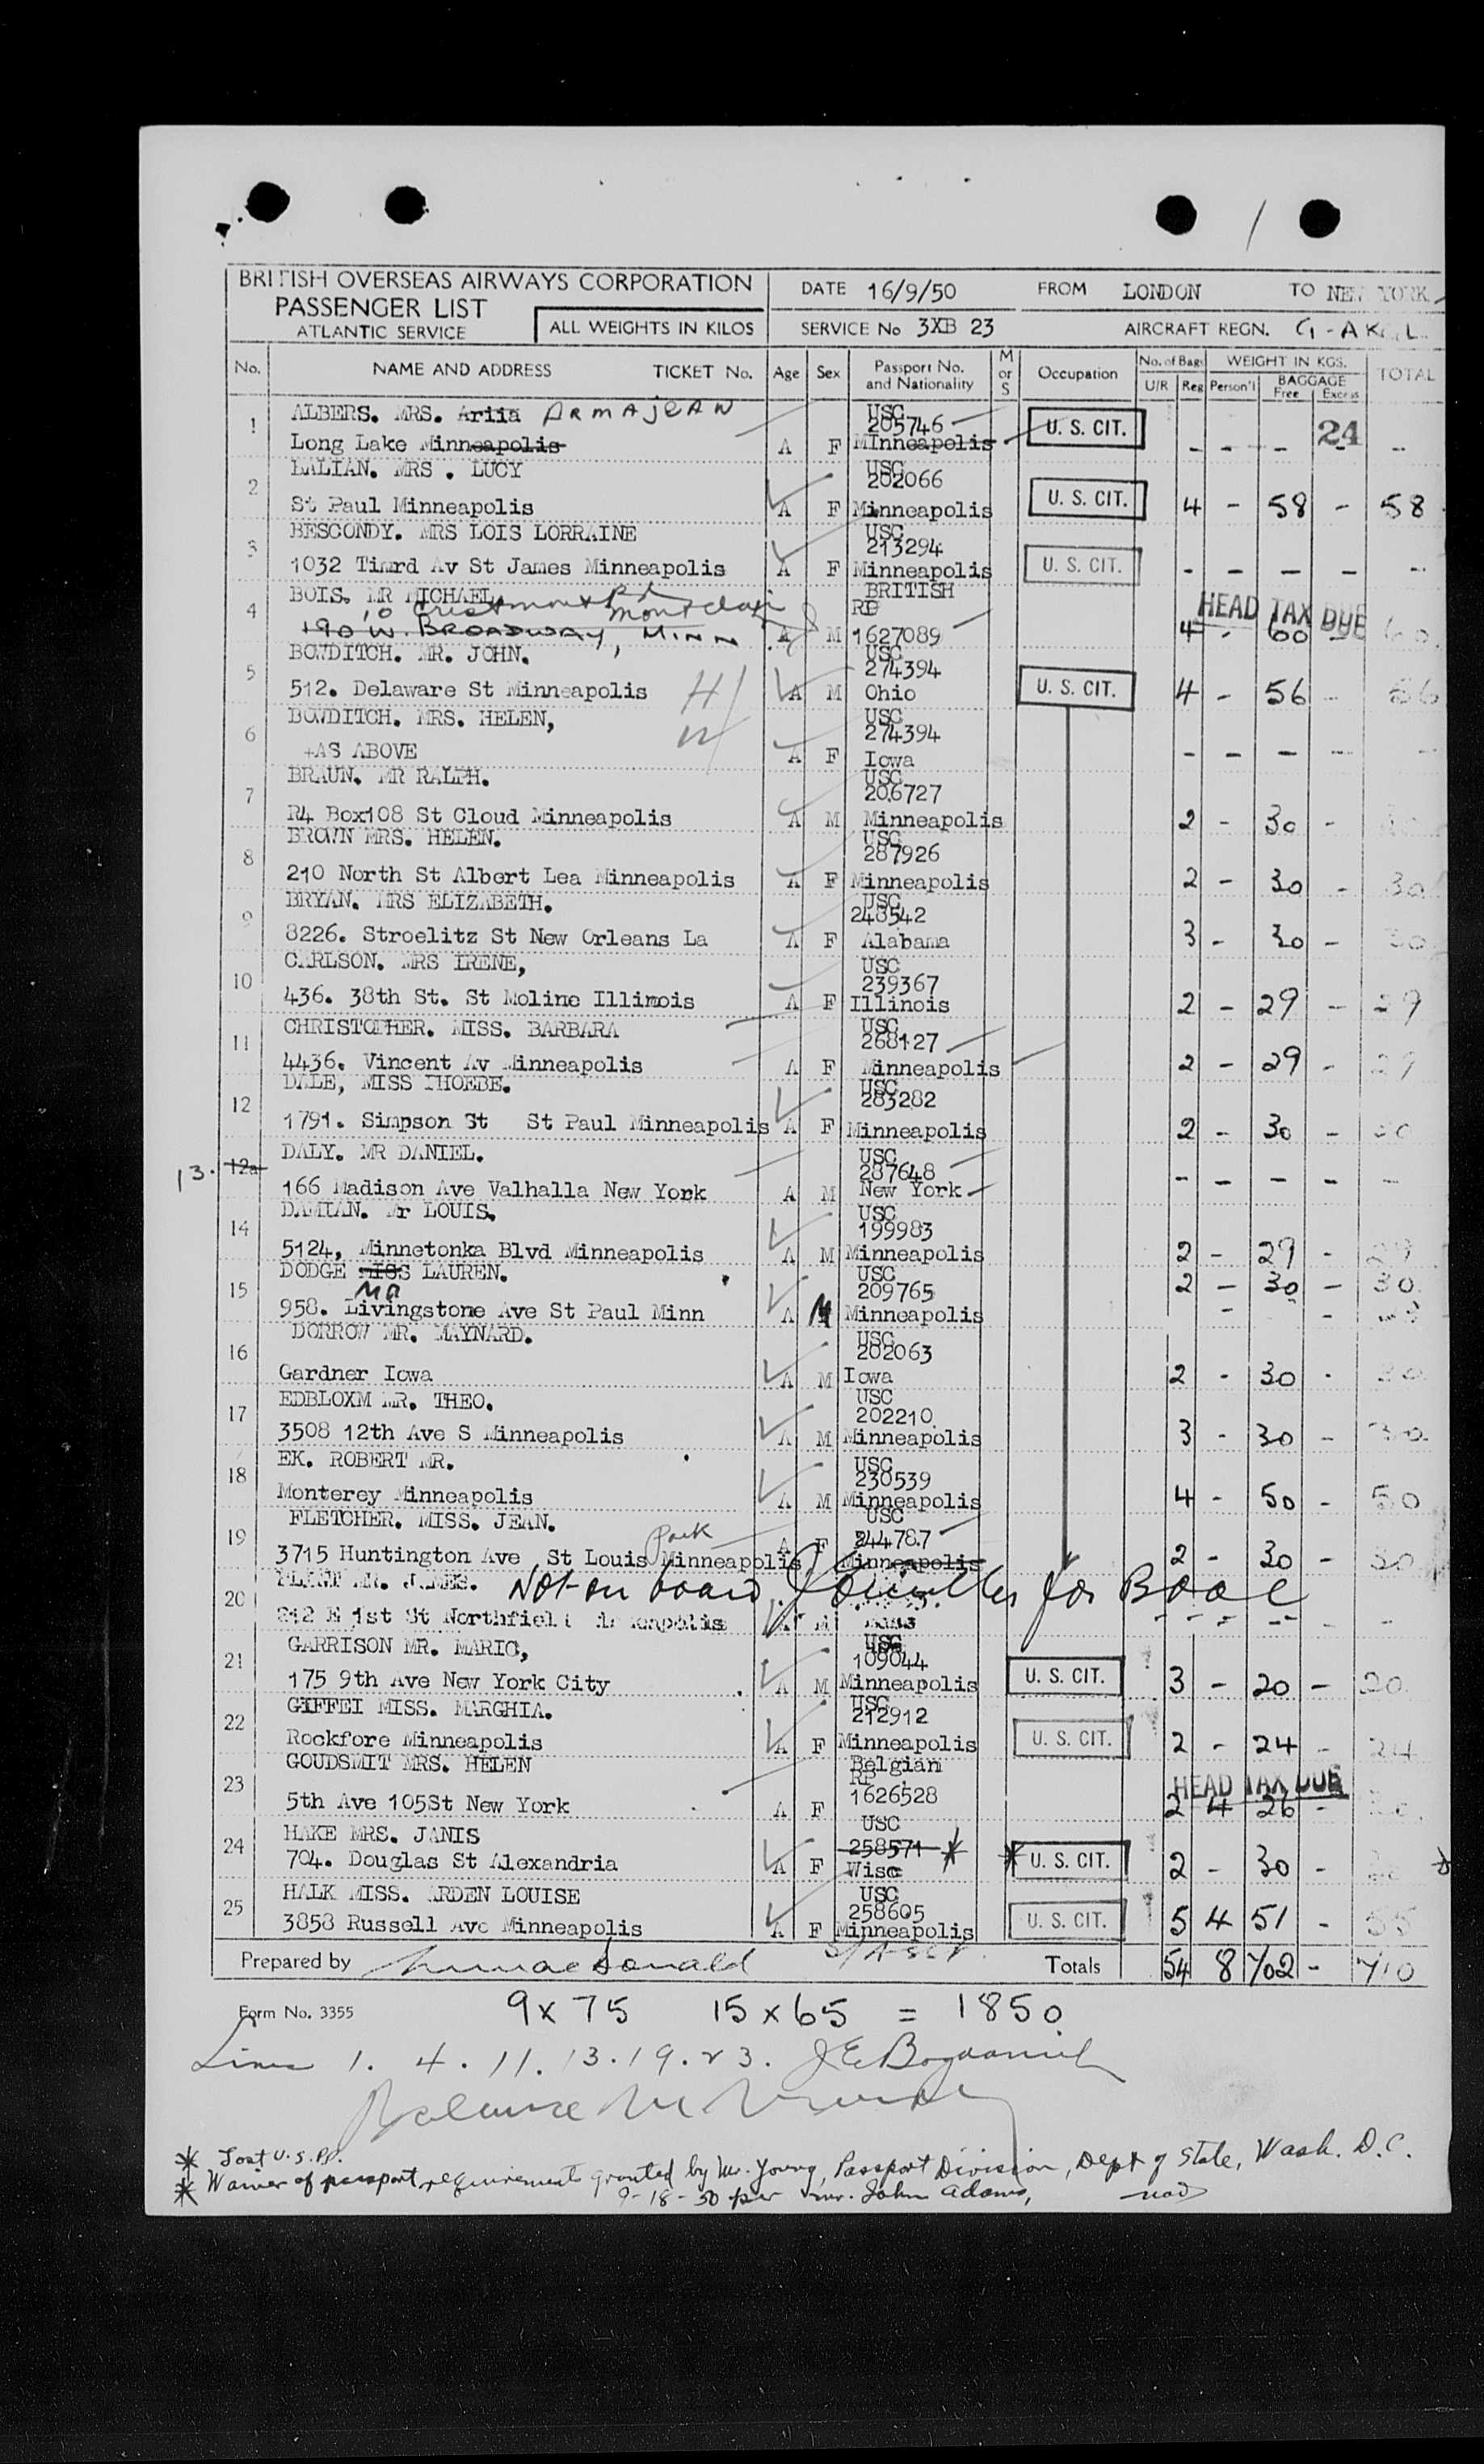 BRITISH OVERSEAS AIRWAYS CORPORATION
PASSENGER LIST
ATLANTIC SERVICE
ALL WEIGHTS IN KILOS
DATE 16/9/50 FROM LONDON TO NEW YORK
SERVICE No 3XB 23 AIRCRAFT REGN. G-AK L
No. NAME AND ADDRESS TICKET No. Age Sex Passport No. and Nationality M or S Occupation No. of Bags U/R Reg WEIGHT IN KGS. Person'l BAGGAGE Free Excess TOTAL
1 ALBERS. MRS. Ariia ARMAJEAN USC 205746 U. S. CIT. 24
Long Lake Minneapolis A F MInneapolis - - - - -
2 BALIAN. MRS . LUCY USC 202066
St Paul Minneapolis A F Minneapolis U. S. CIT. 4 - 58 - 58
3 BESCONDY. MRS LOIS LORRAINE USC 213294
1032 Timrd Av St James Minneapolis A F Minneapolis U. S. CIT. - - - - -
4 BOIS. MR MICHAEL. BRITISH
10 Crestmont Rd Montclair RP HEAD TAX DUE
190 W. BROADWAY, MINN A M 1627089 4 - 60 - 60
5 BOWDITCH. MR. JOHN. USC 274394
512. Delaware St Minneapolis H/ A M Ohio U. S. CIT. 4 - 56 - 56
6 BOWDITCH. MRS. HELEN, W USC 274394
+AS ABOVE A F Iowa - - - - -
7 BRAUN. MR RALPH. USC 206727
R4 Box108 St Cloud Minneapolis A M Minneapolis 2 - 30 -
8 BROWN MRS. HELEN. USC 287926
210 North St Albert Lea Minneapolis A F Minneapolis 2 - 30 - 30
9 BRYAN. MRS ELIZABETH. USC 248542
8226. Stroelitz St New Orleans La A F Alabama 3 - 30 - 30
10 CARLSON. MRS IRENE, USC 239367
436. 38th St. St Moline Illinois A F Illinois 2 - 29 - 29
11 CHRISTOPHER. MISS. BARBARA USC 268127
4436. Vincent Av Minneapolis A F Minneapolis 2 - 29 - 29
12 DALE, MISS PHOEBE. USC 283282
1791. Simpson St St Paul Minneapolis A F Minneapolis 2 - 30 - 30
13. 12a DALY. MR DANIEL. USC 287648
166 Madison Ave Valhalla New York A M New York - - - - -
14 DAMIAN. Mr LOUIS. USC 199983
5124, Minnetonka Blvd Minneapolis A M Minneapolis 2 - 29 - 29
15 DODGE MISS LAUREN. USC 209765 2 - 30 - 30
MR
958. Livingstone Ave St Paul Minn A M Minneapolis
16 DORROW MR. MAYNARD. USC 202063
Gardner Iowa A M Iowa 2 - 30 - 30
17 EDBLOXM MR. THEO. USC 202210
3508 12th Ave S Minneapolis A M Minneapolis 3 - 30 - 30
18 EK. ROBERT MR. USC 230539
Monterey Minneapolis A M Minneapolis 4 - 50 - 50
19 FLETCHER. MISS. JEAN. USC 244787
Park
3715 Huntington Ave St Louis Minneapolis A F Minneapolis 2 - 30 - 30
20 MR. JAMES. Not on board for BOAC
212 E 1st St Northfield A M - - - - -
21 GARRISON MR. MARIO, USC 109044
175 9th Ave New York City A M Minneapolis U. S. CIT. 3 - 20 - 20
22 GIFFEI MISS. MARGHIA. USC 212912
Rockfore Minneapolis A F Minneapolis U. S. CIT. 2 - 24 - 24
23 GOUDSMIT MRS. HELEN Belgian RP HEAD TAX DUE
5th Ave 105St New York A F 1626528 2 4 26 -
24 HAKE MRS. JANIS USC 258571 *
704. Douglas St Alexandria A F Wisc * U. S. CIT. 2 - 30 -
25 HALK MISS. ARDEN LOUISE USC 258605
3858 Russell Ave Minneapolis A F Minneapolis U. S. CIT. 5 4 51 - 55
Prepared by Totals 54 8 702 - 710
Form No. 3355 9 x 75 15 x 65 = 1850
Lines 1. 4. 11. 13. 19. 23.
Balance
* Lost U.S. PP.
* Waiver of passport requirements granted by Mr. Young, Passport Division, Dept of State, Wash. D.C.
9-18-50 per Mr. John Adams,